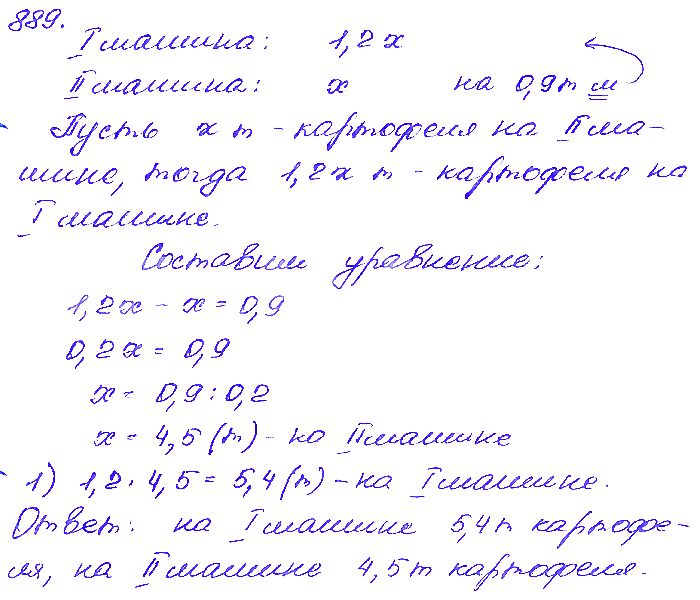 889.
I машина: 1,2х
II машина: х на 0,9т м
Пусть х т - картофеля на II ма-
шине, тогда 1,2х т - картофеля на
I машине.
Составим уравнение:
1,2х - х = 0,9
0,2х = 0,9
х = 0,9 : 0,2
х = 4,5 (т) - на II машине
1) 1,2 · 4,5 = 5,4 (т) - на I машине.
Ответ: на I машине 5,4т картофе-
ля, на II машине 4,5т картофеля.